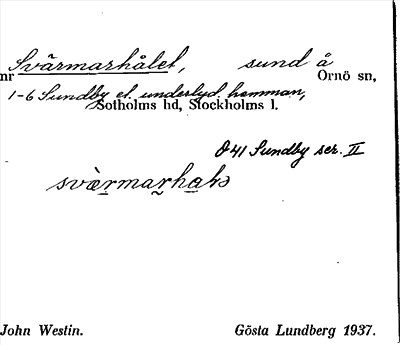 Svärmarhålet, sund å
nr Ornö sn,
1-6 Sundby el. underlyd. hemman,
Sotholms hd, Stockholms l.
Ö 41 Sundby ser. II
John Westin. Gösta Lundberg 1937.